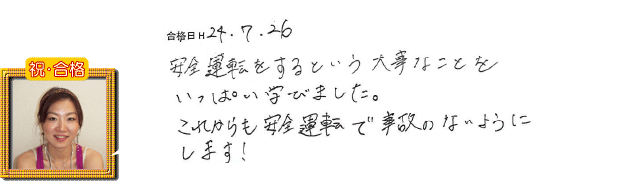 合格日H24.7.26
祝・合格
安全運転をするという大事なことを
いっぱい学びました。
これからも安全運転で事故のないように
します!